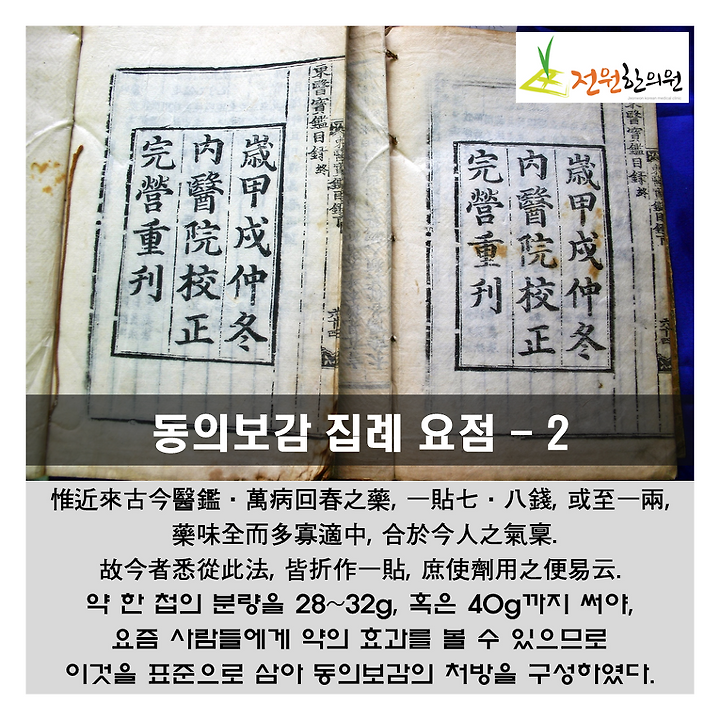 전원한의원
東醫寶鑑目錄終
歲甲戌仲冬
內醫院校正
完營重刊
東醫寶鑑目錄終
歲甲戌仲冬
內醫院校正
完營重刊
동의보감 집례 요점 - 2
惟近來古今醫鑑·萬病回春之藥, 一貼七·八錢, 或至一兩,
藥味全而多寡適中, 合於今人之氣稟.
故今者悉從此法, 皆折作一貼, 庶使劑用之便易云.
약 한 첩의 분량을 28~32g, 혹은 40g까지 써야,
요즘 사람들에게 약의 효과를 볼 수 있으므로
이것을 표준으로 삼아 동의보감의 처방을 구성하였다.